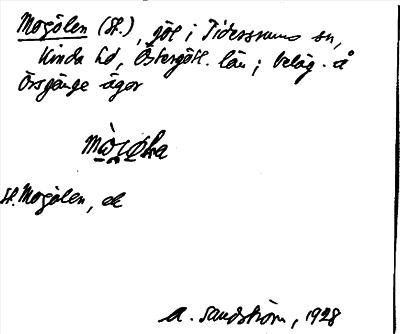 Mogölen (St.), göl i Tidersrums sn,
Kinda hd, Östergötl. län; beläg. å
Örsgänge ägor
St. Mogölen, ek
A. Sandström, 1928